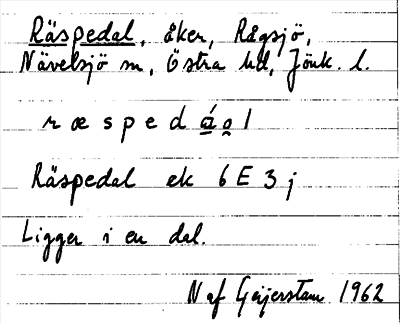 Räspedal, åker, Rågsjö,
Nävelsjö sn, Östra hd, Jönk. l.
r æ s p e d á̱ o̭ l
Räspedal ek 6E3j
Ligger i en dal.
N af Geijerstam 1962